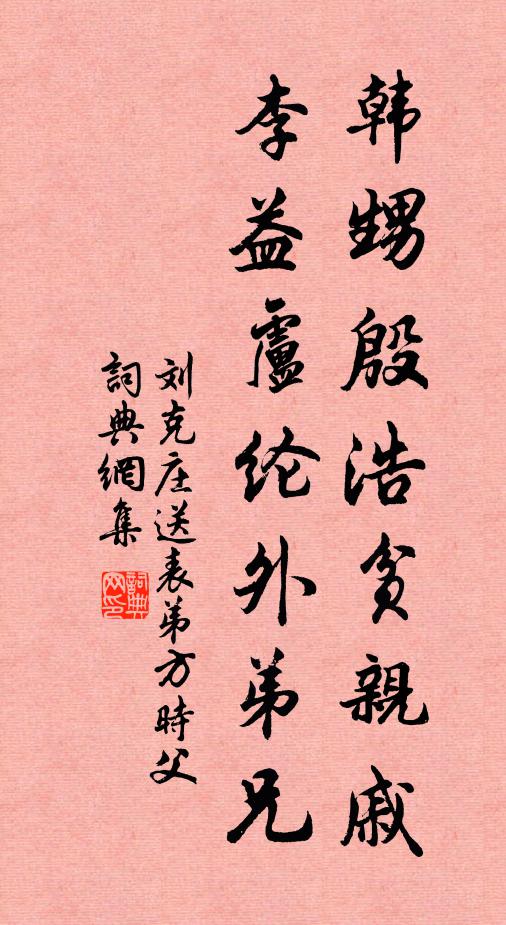 韩甥殷浩贫親戚
李益盧纶外弟兄
刘克庄送表弟方時父
詞典網集
詞典网印